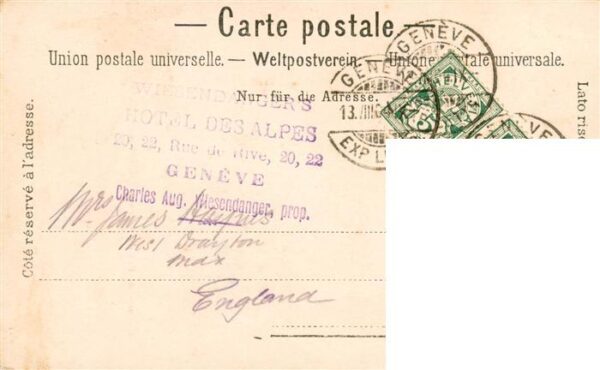 — Carte postale —
Union postale universelle. — Weltpostverein. — Unione postale universale.
Nur für die Adresse.
WIESENDANGER'S
HOTEL DES ALPES
20, 22, Rue de Rive, 20, 22
GENÈVE
Charles Aug. Wiesendanger, prop.
Mrs James
West Drayton
Max
England
Côté réservé à l'adresse.
Lato rise
GENÈVE
GENÈVE
13.VIII
EXP. L